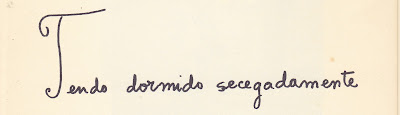 Tendo dormido secegadamente